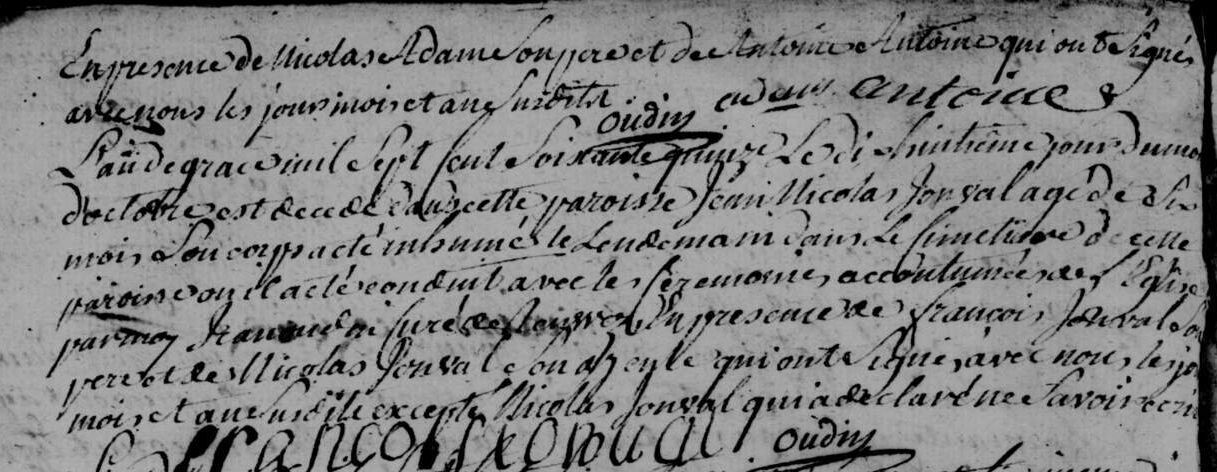 En presence de Nicolas Adam son pere et de Antoine Antoine qui ont signés
avec nous les jour mois et an susdits
oudin adam antoine
L'an de grace mil sept cent soixante quinze Le dix huitième jour du mois
d'octobre est decedé dans cette paroisse Jean Nicolas Jonval agé de six
mois son corps a été inhumé le lendemain dans le cimetierre de cette
paroisse ou il a été conduit avec les ceremonies accoutumées de l'Eglise
par moy Jean oudin curé de En presence de françois Jonval son
pere et de Nicolas Jonval son qui ont signés avec nous les jour
mois et an susdits excepté Nicolas Jonval qui a declaré ne savoir ecrire
francois Jonval oudin